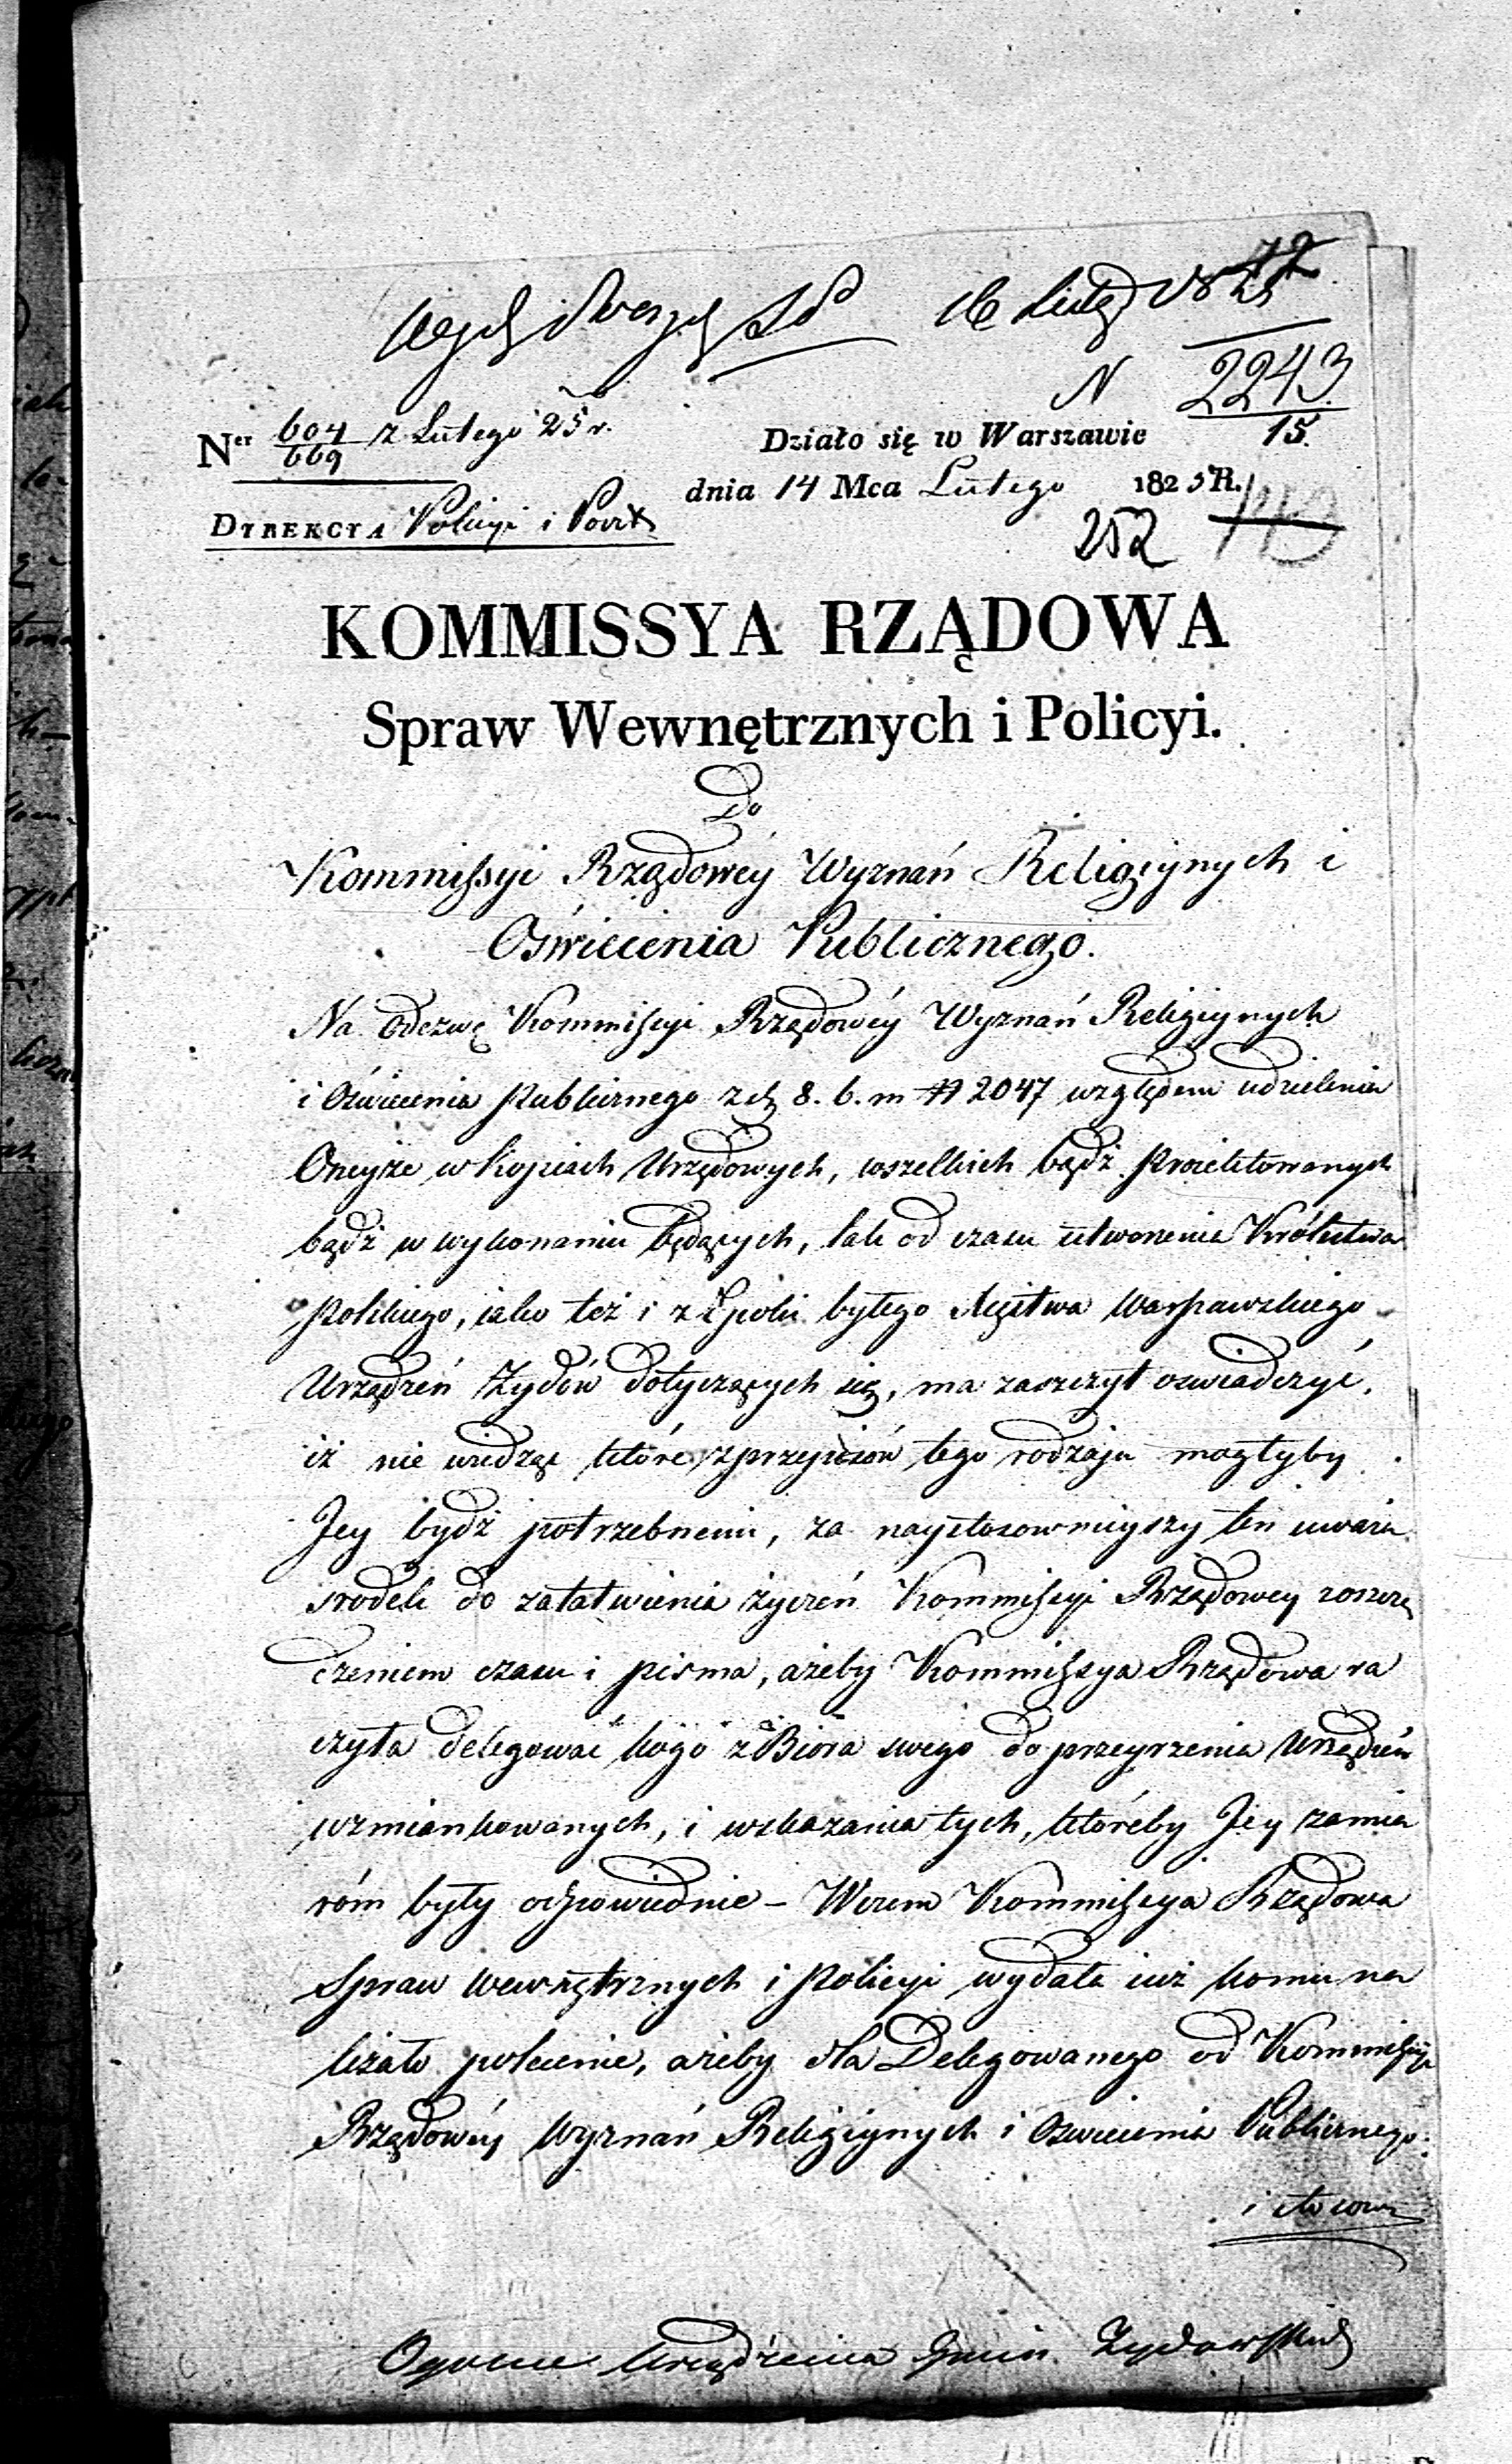 16 Lutego 1825
72
N 2243
15.
Ner 604/669 z Lutego 25 r.
Działo się w Warszawie
dnia 14 Mca Lutego 1825 R.
DYREKCYA Policyi i Poczt
252
KOMMISSYA RZĄDOWA
Spraw Wewnętrznych i Policyi.
Do
Kommissyi Rządowéy Wyznań Religiynych i
Oświecenia Publicznego.
Na odezwę Kommissyi Rządowéy Wyznań Religiynych
i Oświecenia Publicznego z d. 8. b. m N 2047 względem udzielenia
Oneyże w kopiach Urzędowych, wszelkich bądź proiektowanych
bądź w wykonaniu będących, tak od czasu utworzenia Królestwa
Polskiego, iako też i z Epoki byłego Xięstwa Warszawskiego
Urządzeń Żydów dotyczących się, ma zaszczyt oswiadczyć,
iż nie wiedząc które z przepisów tego rodzaju mogłyby
Jey bydź potrzebnemi, za naystosownieyszy ten uważa
srodek do załatwienia życzeń Kommissyi Rządowey z oszczę
dzeniem czasu i pisma, ażeby Kommissya Rządowa ra
czyła delegować kogo z Bióra swego do przeyrzenia Urządzeń
wzmiankowanych, i wskazania tych, któreby Jey zamia
róm były odpowiednie - Wczem Kommissya Rządowa
Spraw Wewnętrznych i Policyi wydała iuż komu na
leżało polecenie, ażeby dla Delegowanego od Kommissyi
Rządowéy Wyznań Religiynych i Oswiecenia Publicznego
i stosow
Ogólne Urządzenia Gmin Żydowskich